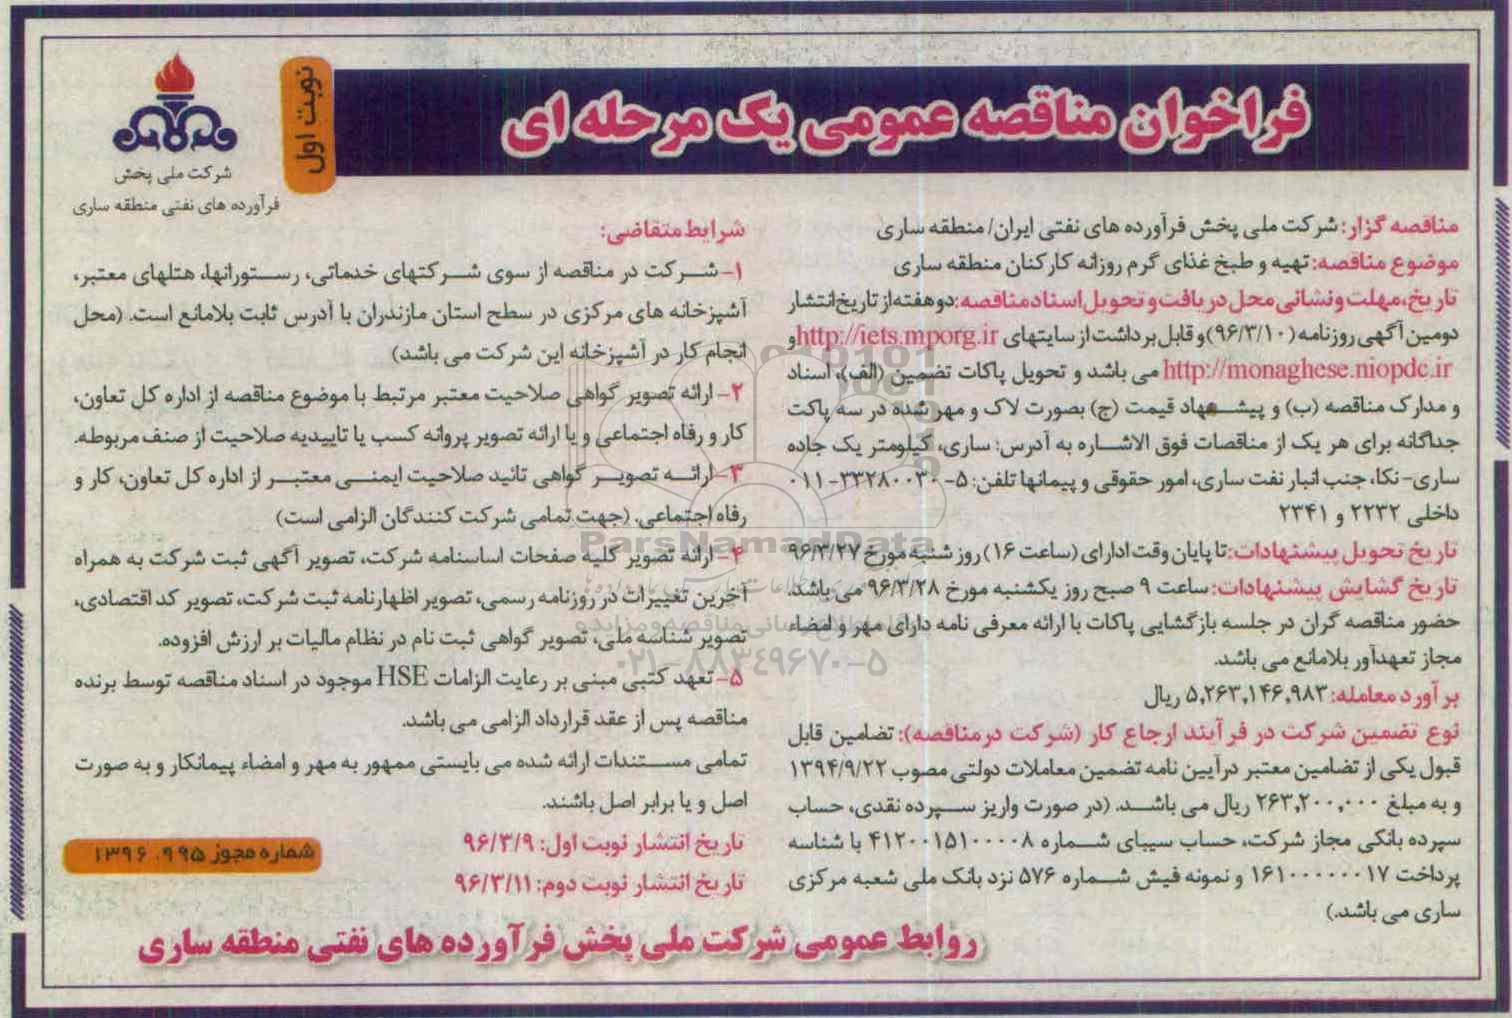 فراخوان مناقصه عمومی یک مرحله ای
نوبت اول
شرکت ملی پخش
فرآورده های نفتی منطقه ساری
مناقصه گزار: شرکت ملی پخش فرآورده های نفتی ایران/ منطقه ساری
موضوع مناقصه: تهیه و طبخ غذای گرم روزانه کارکنان منطقه ساری
تاریخ، مهلت و نشانی محل دریافت و تحویل اسناد مناقصه: دو هفته از تاریخ انتشار
دومین آگهی روزنامه (۹۶/۳/۱۰) و قابل برداشت از سایتهای http://iets.mporg.ir و
http://monaghese.niopdc.ir می باشد و تحویل پاکات تضمین (الف)، اسناد
و مدارک مناقصه (ب) و پیشنهاد قیمت (ج) بصورت لاک و مهر شده در سه پاکت
جداگانه برای هر یک از مناقصات فوق الاشاره به آدرس: ساری، کیلومتر یک جاده
ساری- نکا، جنب انبار نفت ساری، امور حقوقی و پیمانها تلفن: ۵-۳۳۲۸۰۰۳۰-۰۱۱
داخلی ۲۲۳۲ و ۲۳۴۱
تاریخ تحویل پیشنهادات: تا پایان وقت اداری (ساعت ۱۶) روز شنبه مورخ ۹۶/۳/۲۷
تاریخ گشایش پیشنهادات: ساعت ۹ صبح روز یکشنبه مورخ ۹۶/۳/۲۸ می باشد.
حضور مناقصه گران در جلسه بازگشایی پاکات با ارائه معرفی نامه دارای مهر و امضاء
مجاز تعهدآور بلامانع می باشد.
برآورد معامله: ۵,۲۶۳,۱۴۶,۹۸۳ ریال
نوع تضمین شرکت در فرآیند ارجاع کار (شرکت درمناقصه): تضامین قابل
قبول یکی از تضامین معتبر درآیین نامه تضمین معاملات دولتی مصوب ۱۳۹۴/۹/۲۲
و به مبلغ ۲۶۳,۲۰۰,۰۰۰ ریال می باشد. (در صورت واریز سپرده نقدی، حساب
سپرده بانکی مجاز شرکت، حساب سیبای شماره ۴۱۲۰۰۱۵۱۰۰۰۰۸ با شناسه
پرداخت ۱۶۱۰۰۰۰۰۰۱۷ و نمونه فیش شماره ۵۷۶ نزد بانک ملی شعبه مرکزی
ساری می باشد.)
شرایط متقاضی:
۱- شرکت در مناقصه از سوی شرکتهای خدماتی، رستورانها، هتلهای معتبر،
آشپزخانه های مرکزی در سطح استان مازندران با آدرس ثابت بلامانع است. (محل
انجام کار در آشپزخانه این شرکت می باشد)
۲- ارائه تصویر گواهی صلاحیت معتبر مرتبط با موضوع مناقصه از اداره کل تعاون،
کار و رفاه اجتماعی و یا ارائه تصویر پروانه کسب یا تاییدیه صلاحیت از صنف مربوطه.
۳- ارائه تصویر گواهی تائید صلاحیت ایمنی معتبر از اداره کل تعاون، کار و
رفاه اجتماعی. (جهت تمامی شرکت کنندگان الزامی است)
۴- ارائه تصویر کلیه صفحات اساسنامه شرکت، تصویر آگهی ثبت شرکت به همراه
آخرین تغییرات در روزنامه رسمی، تصویر اظهارنامه ثبت شرکت، تصویر کد اقتصادی،
تصویر شناسه ملی، تصویر گواهی ثبت نام در نظام مالیات بر ارزش افزوده.
۵- تعهد کتبی مبنی بر رعایت الزامات HSE موجود در اسناد مناقصه توسط برنده
مناقصه پس از عقد قرارداد الزامی می باشد.
تمامی مستندات ارائه شده می بایستی ممهور به مهر و امضاء پیمانکار و به صورت
اصل و یا برابر اصل باشند.
تاریخ انتشار نوبت اول: ۹۶/۳/۹
تاریخ انتشار نوبت دوم: ۹۶/۳/۱۱
شماره مجوز ۱۳۹۶.۹۹۵
روابط عمومی شرکت ملی پخش فرآورده های نفتی منطقه ساری
ParsNamadData
۰۲۱-۸۸۳۴۹۶۷۰-۵